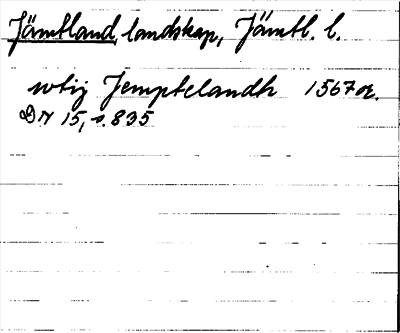 Jämtland, landskap, Jämtl. l.
wtij Jemptelandh 1567 or.
DN 15, s. 835